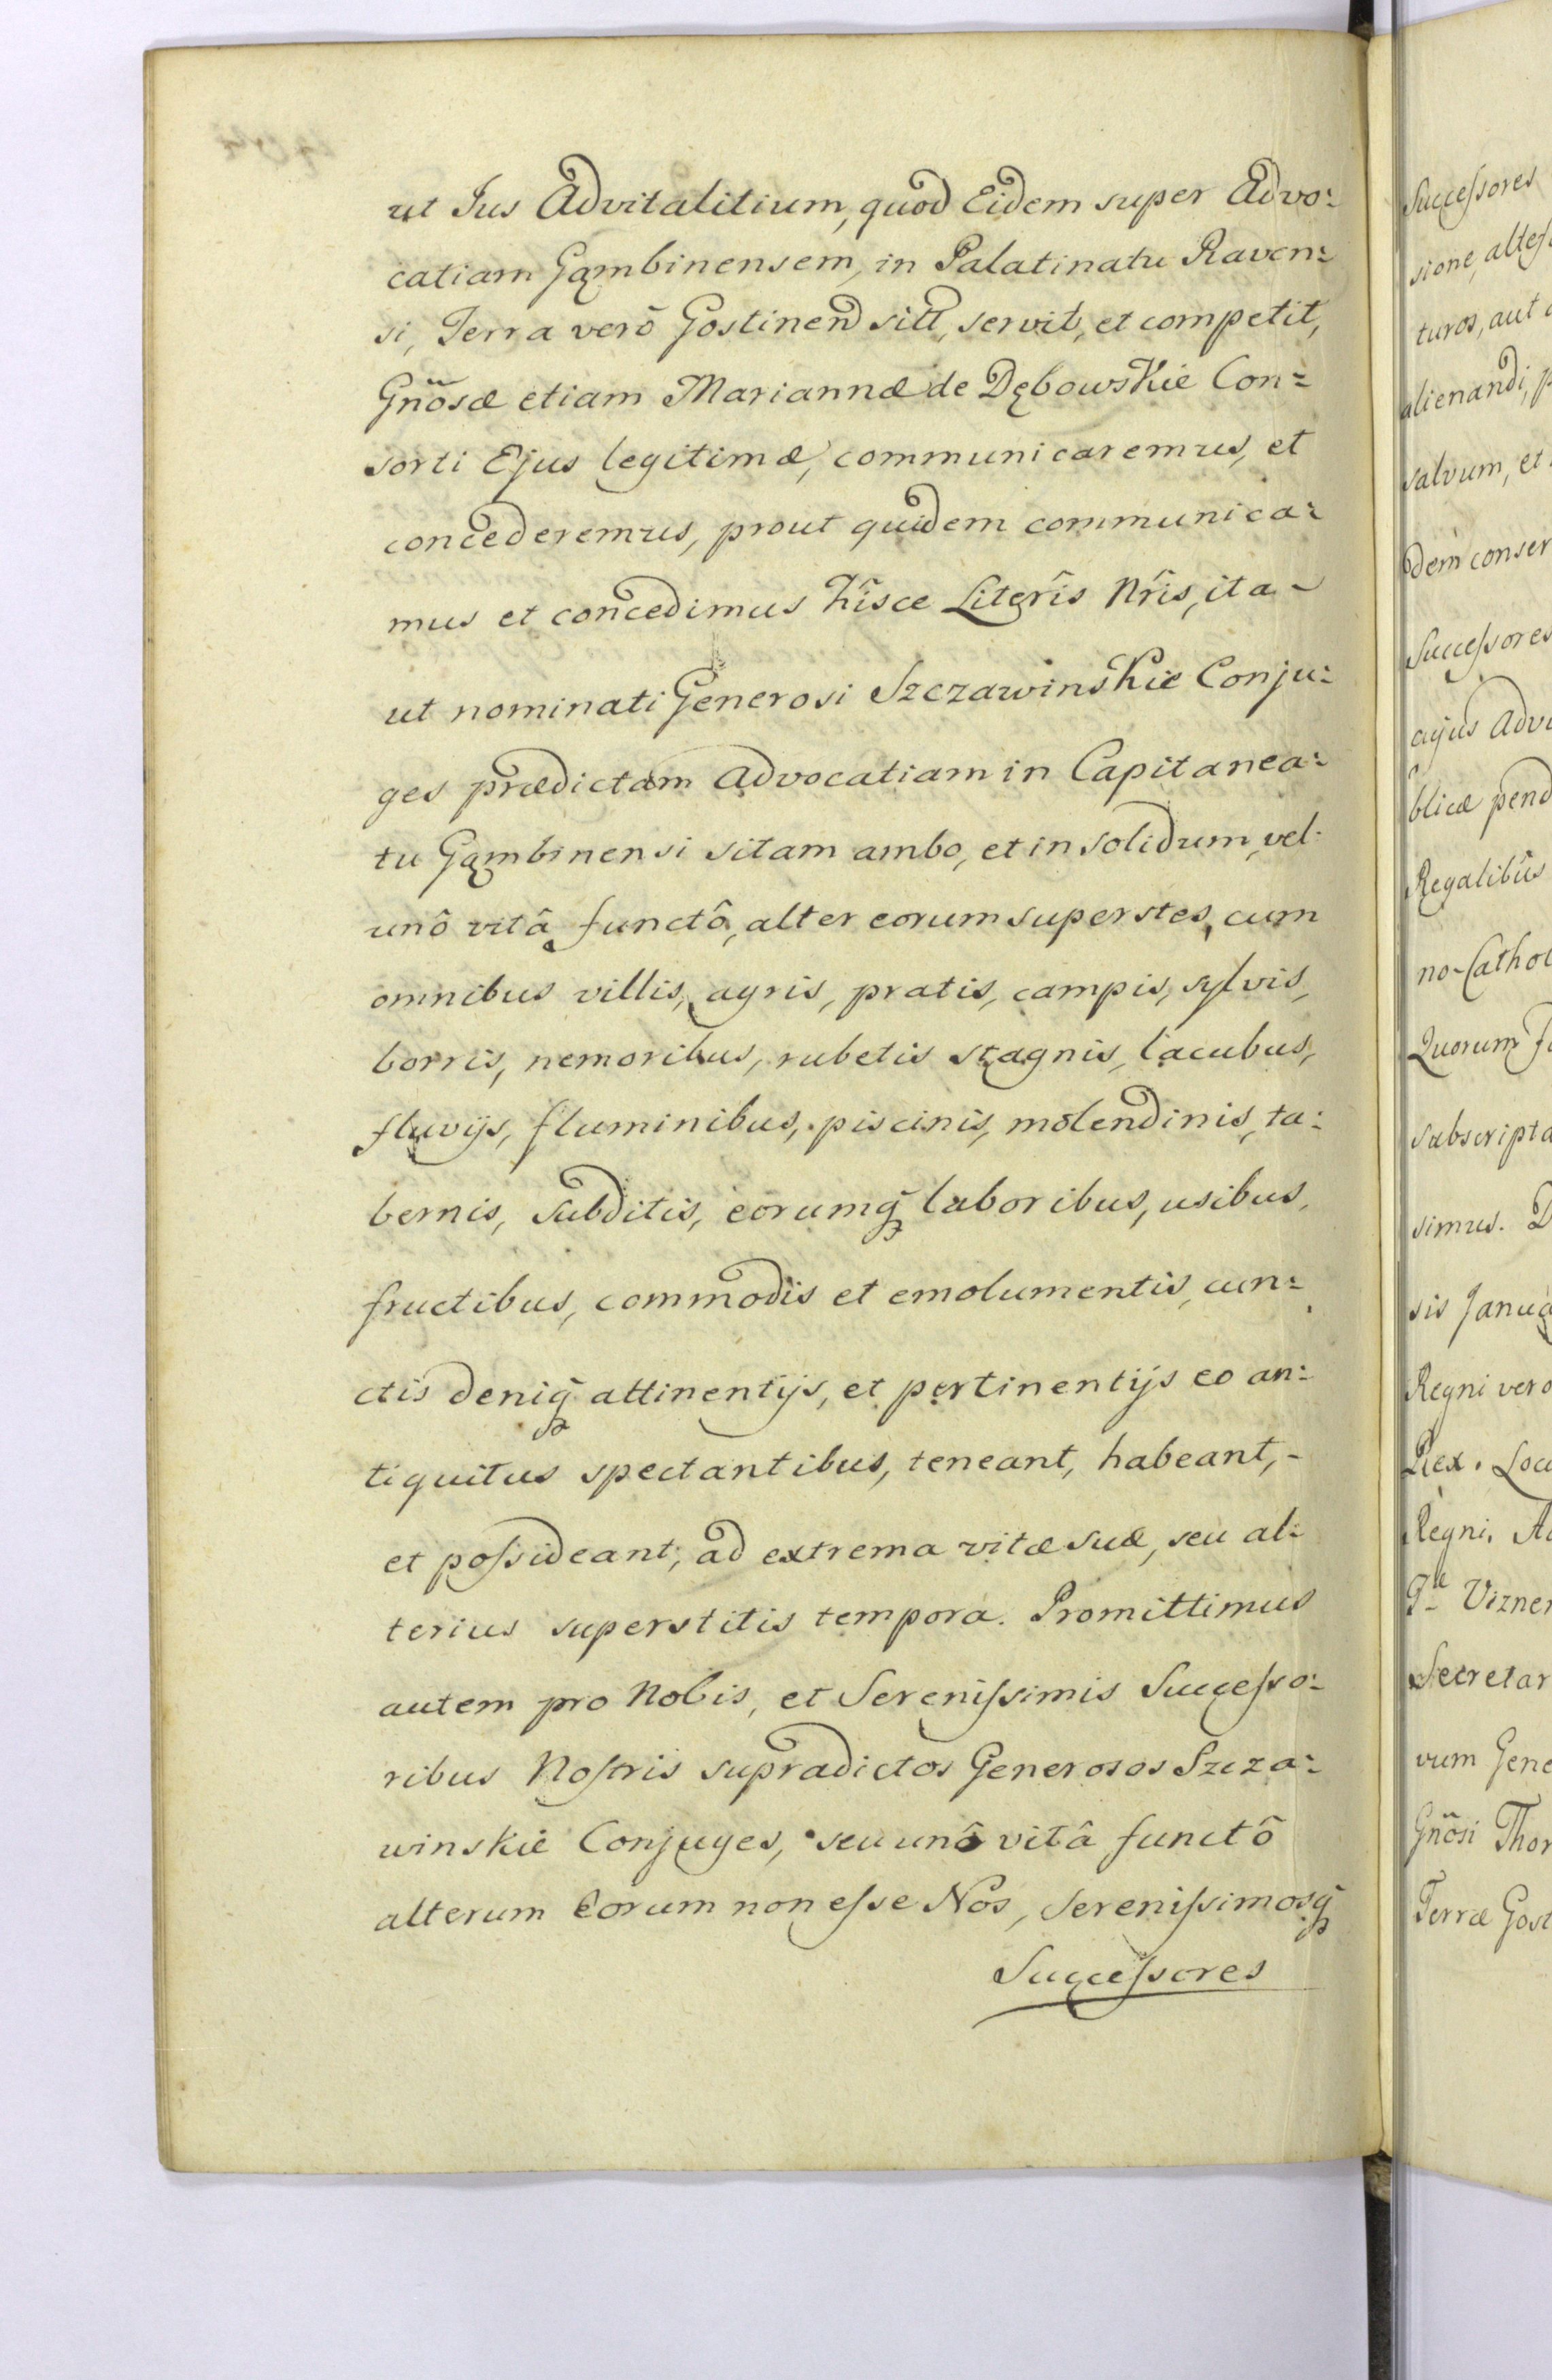 ut Jus Advitalitium, quod Eidem super Advo:
catiam Gąmbinensem, in Palatinatu Raven:
si, Terra verô Gostinen̄ sitt, servit, et competit,
Gn̄osæ etiam Mariannæ de Dębowskie Con:
sorti Ejus legitimæ, communicaremus, et
concederemus, prout quidem communica:
mus et concedimus hîsce Literîs Nr̂is, ita -
ut nominati Generosi Szczawinskie Conju:
ges prædictam Advocatiam in Capitanea:
tu Gąmbinensi sitam ambo, et in solidum, vel
unô vitâ functô, alter eorum superstes, cum
omnibus villis, agris, pratis, campis, sylvis,
borris, nemoribus, rubetis stagnis, lacubus,
fluvijs, fluminibus, piscinis, molendinis, ta:
bernis, subditis, eorumq̃ laboribus, usibus,
fructibus, commodis et emolumentis, cun:
ctis deniq̃ attinentijs, et pertinentijs eo an:
tiquitus spectantibus, teneant, habeant, -
et poſsideant, ad extrema vitæ suæ, seu al:
terius superstitis tempora. Promittimus
autem pro Nobis, et Sereniſsimis Succeſso:
ribus Noſtris supradictos Generosos Szcza:
winskie Conjuges, seu unô vitâ functô
alterum Eorum non eſse Nos, Sereniſsimosq̃
Succeſsores
Succeſsores
sione, alteſ
turos, aut
alienandi, p
salvum, et
dem conser
Succeſsores
cujus Adv
blicæ pend
Regalibûs
no-Cathol
Quorum
subscripta
simus. D
sis Janua
Regni vero
Rex. Locu
Regni. A
Vizner
Secretar
vum Gene
Gn̄osi Thom
Terræ Gost